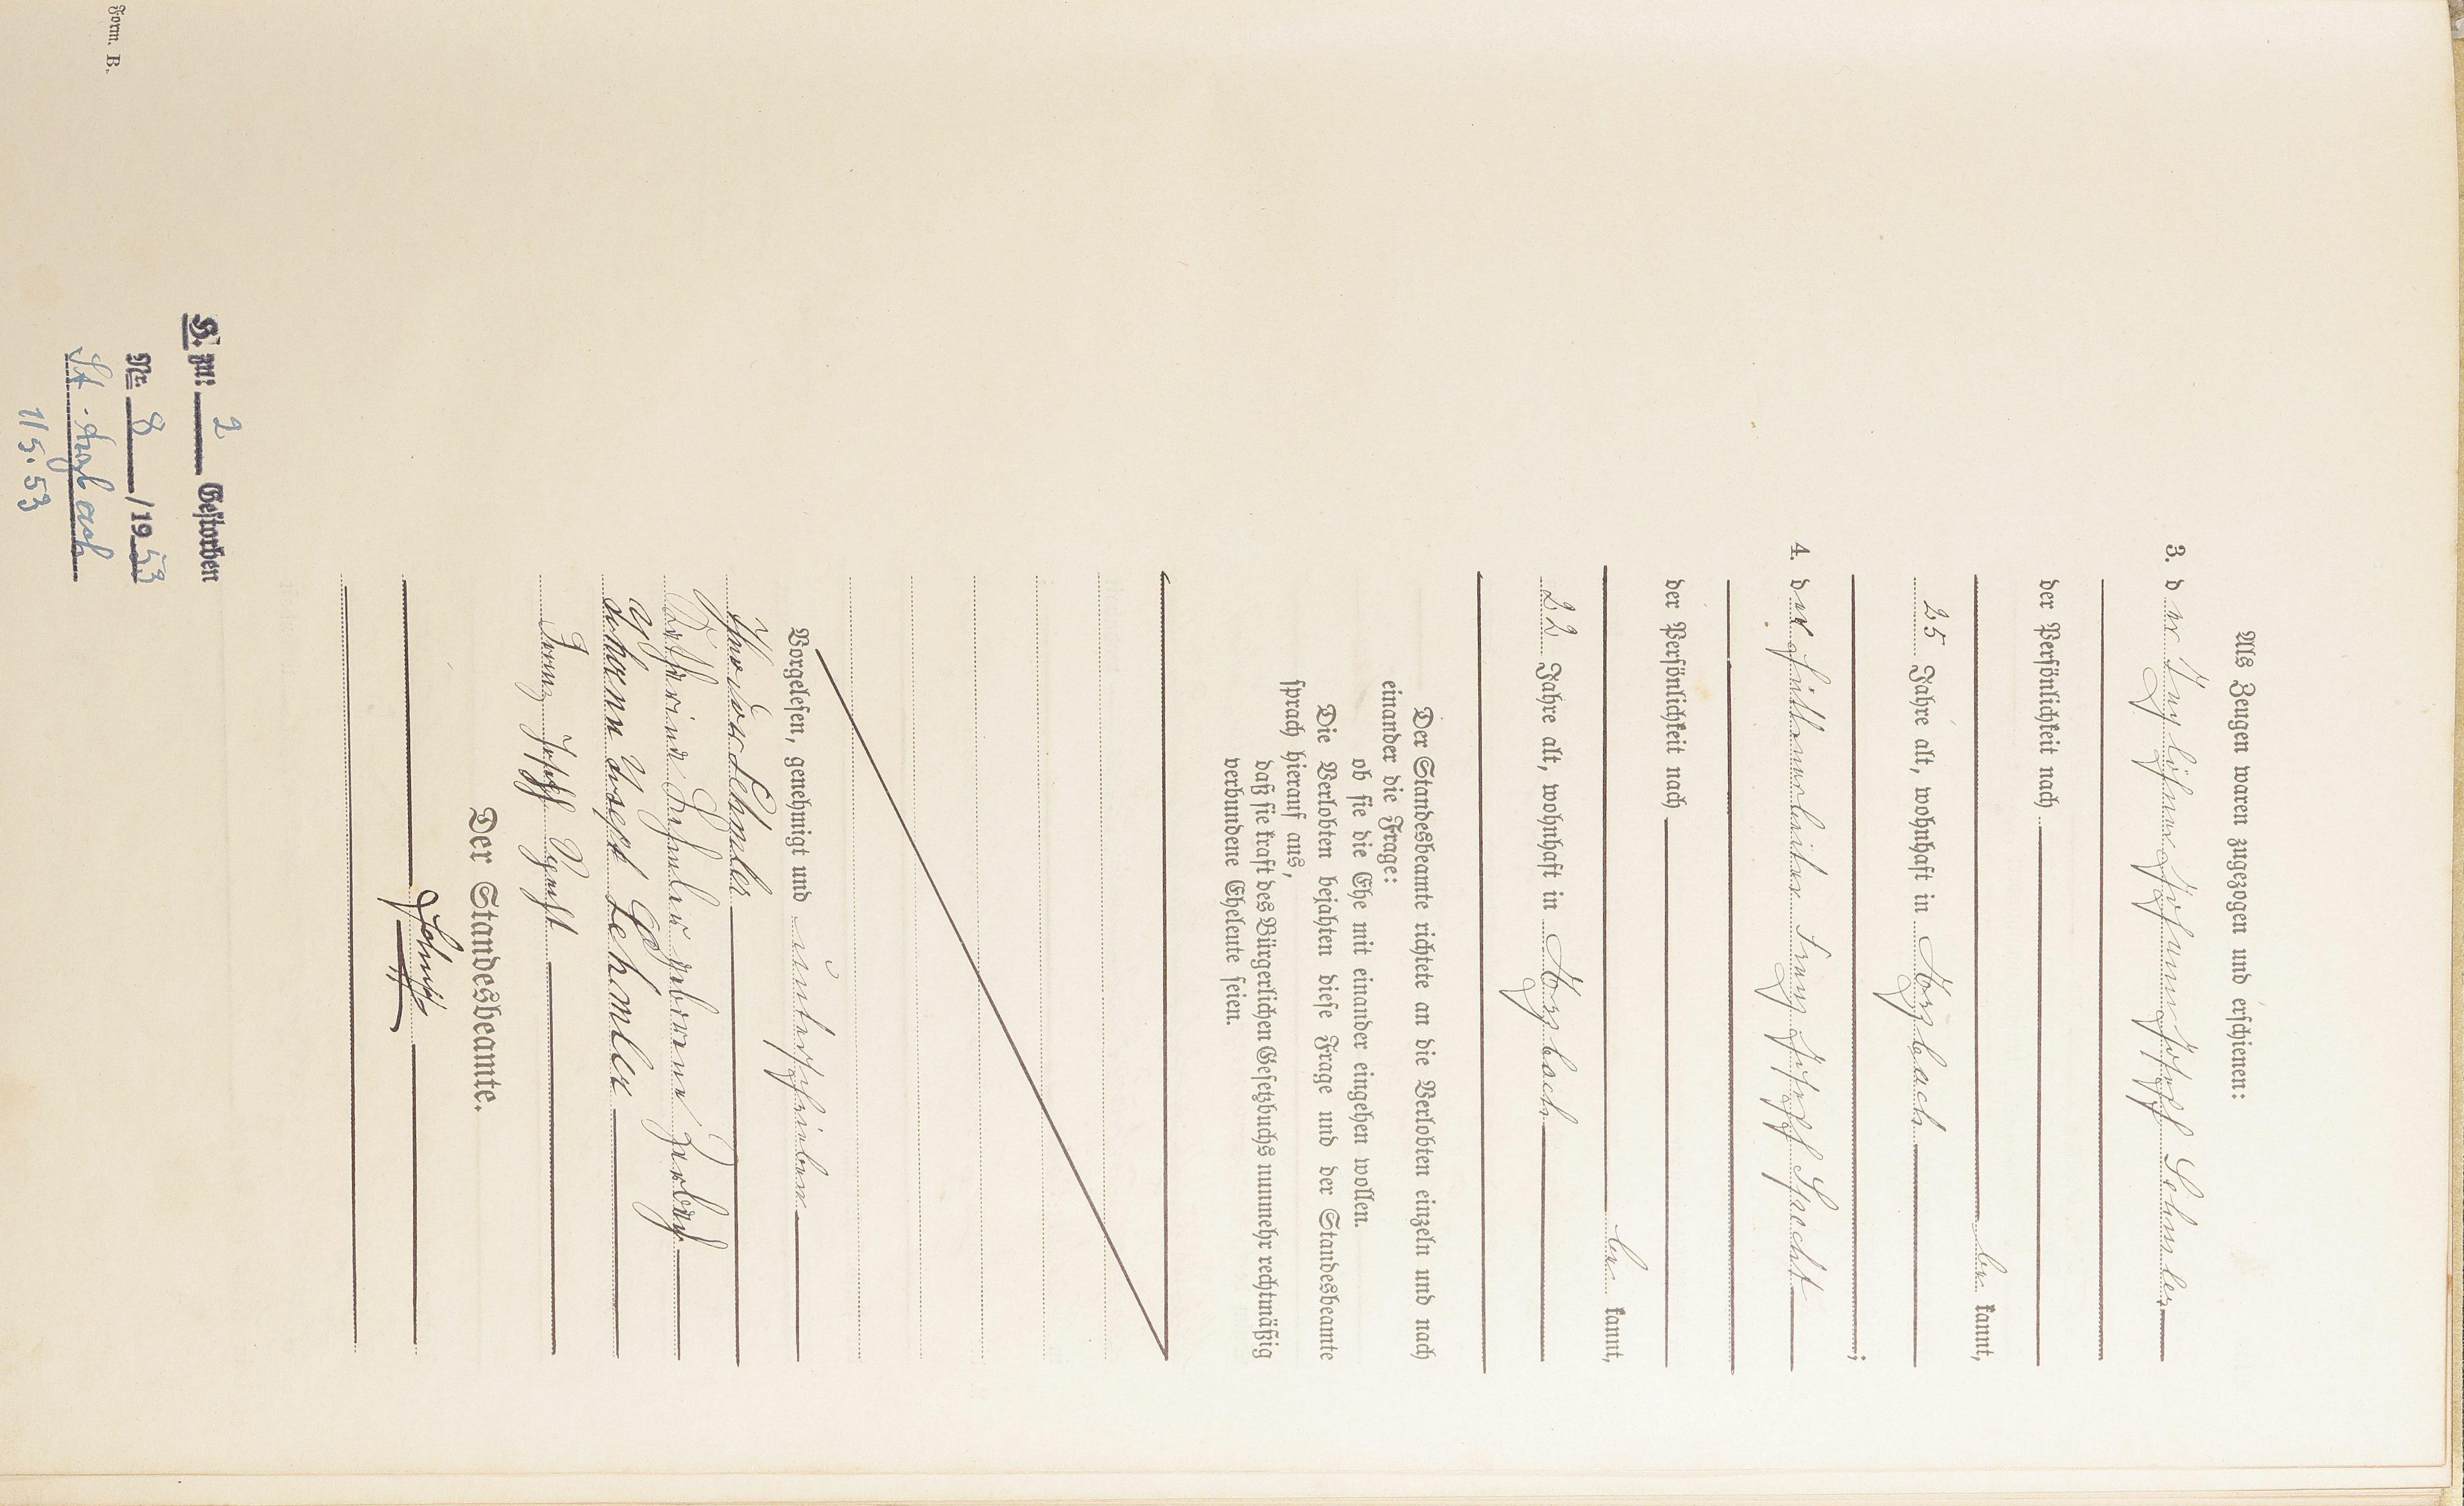 Als Zeugen waren zugezogen und erschienen:
3. der Tagelöhner Johann Joseph Lehmler
der Persönlichkeit nach
be kannt,
25 Jahre alt, wohnhaft in Arzbach
;
4. der Hüttenarbeiter Franz Joseph Specht
der Persönlichkeit nach
be kannt,
22 Jahre alt, wohnhaft in Arzbach
Der Standesbeamte richtete an die Verlobten einzeln und nach
einander die Frage:
ob sie die Ehe mit einander eingehen wollen.
Die Verlobten bejahten diese Frage und der Standesbeamte
sprach hierauf aus,
daß sie kraft des Bürgerlichen Gesetzbuchs nunmehr rechtmäßig
verbundene Eheleute seien.
Vorgelesen, genehmigt und unterschrieben
Lehmler
Katharina Lehmler geborene
Johann Josef Lehmler
Franz Joseph Specht
Der Standesbeamte.
Form. B.
S. M: 2 Gestorben
Nr. 8 /1953
St. Arzbach
1/5.53